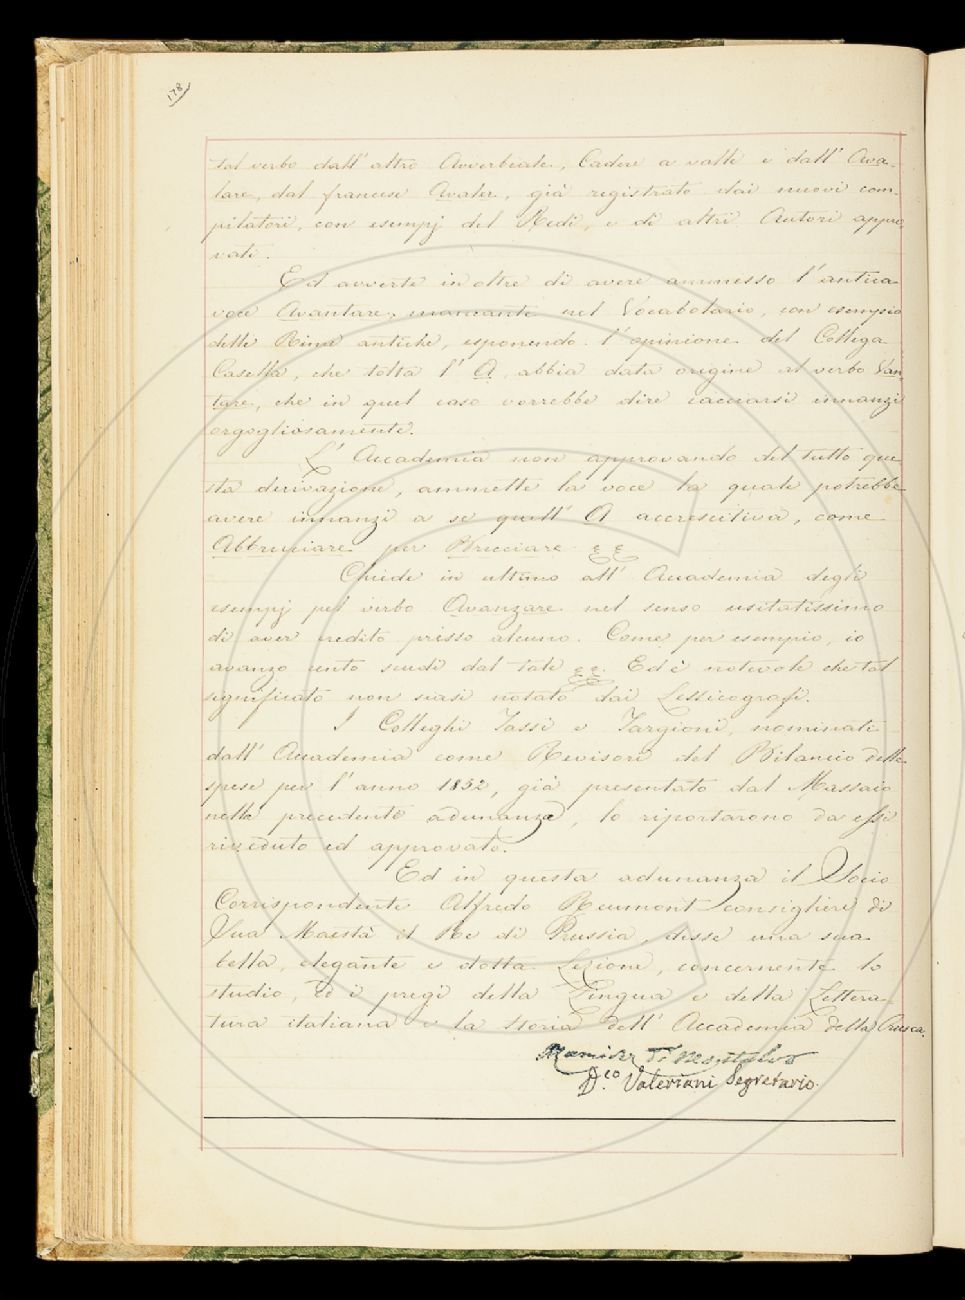 178
tal verbo dall' altro Avverbiale, Cadere a valle e dall' Ava-
lare, dal francese Avaler, già registrato dai nuovi com-
pilatori, con esempj del Redi, e di altri Autori appro-
vati.
Ed avverte inoltre di avere ammesso l'antica
voce Avantare, mancante nel Vocabolario, con esempio
delle Rime antiche, esponendo l'opinione del Collega
Casella, che tolta l' A, abbia data origine al verbo Van-
tare, che in quel caso vorrebbe dire cacciarsi innanzi
orgogliosamente.
L' Accademia non approvando del tutto que-
sta derivazione, ammette la voce la quale potrebbe
avere innanzi a se quell' A accrescitiva, come
Abbruciare per Bruciare
Chiede in ultimo all' Accademia degli
esempj pel verbo Avanzare nel senso usitatissimo
di aver credito presso alcuno. Come per esempio, io
avanzo cento scudi dal tale Ed è notevole che tal
significato non siasi notato dai Lessicografi.
I Colleghi Tassi e Targioni, nominati
dall' Accademia come Revisori del Bilancio delle
spese per l' anno 1852, già presentato dal Massaio
nella precedente adunanza, lo riportarono da essi
riveduto ed approvato.
Ed in questa adunanza il Socio
Corrispondente Alfredo Reumont consigliere di
Sua Maestà il Re di Prussia, disse una sua
bella, elegante e dotta Lezione, concernente lo
studio, ed i pregi della Lingua e della Lettera-
tura italiana e la storia dell' Accademia della Crusca.
D.co Valeriani Segretario.